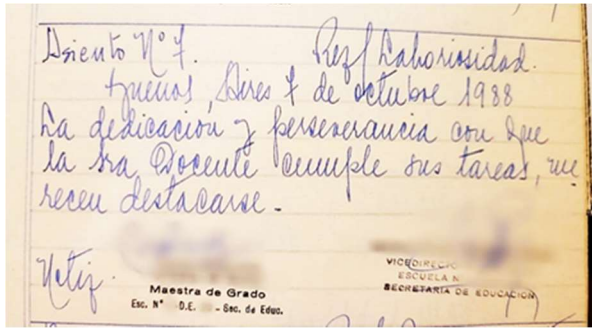 Asiento Nº 7. Ref/ Laboriosidad.
Buenos Aires 7 de octubre 1988
La dedicación y perseverancia con que
la sra Docente cumple sus tareas, me
recen destacarse.-
Notif.
Maestra de Grado
Esc. Nº D.E. - Sec. de Educ.
VICEDIRECTO
ESCUELA N
SECRETARIA DE EDUCACION